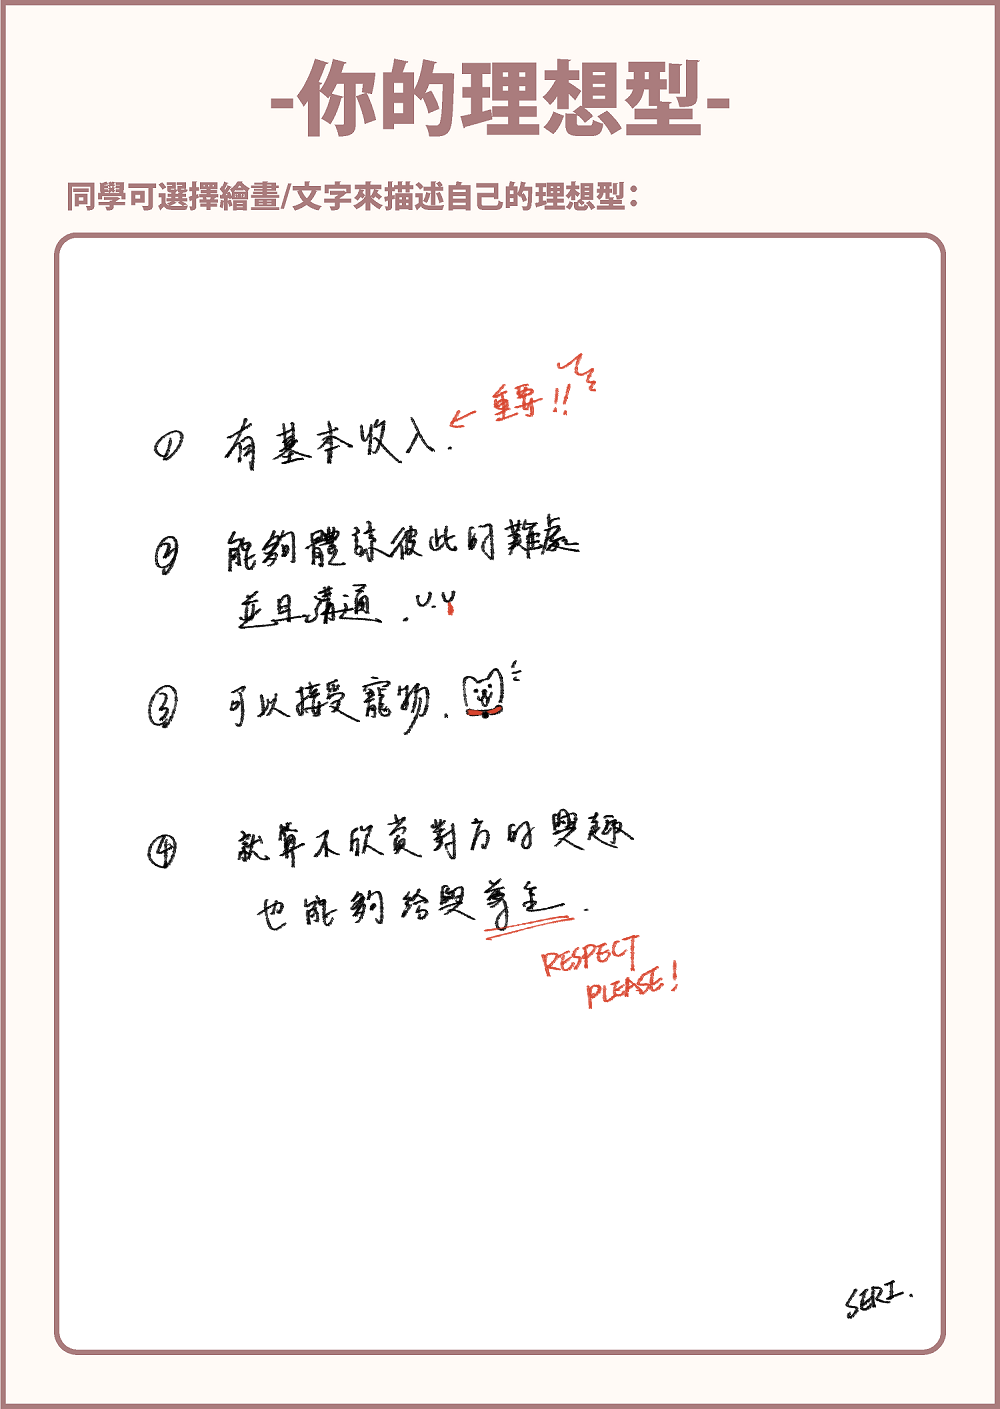 -你的理想型-
同學可選擇繪畫/文字來描述自己的理想型：
① 有基本收入. ← 重要!!
② 能夠體諒彼此的難處
並且溝通.
③ 可以接受寵物.
④ 就算不欣賞對方的興趣
也能夠給與尊重.
RESPECT
PLEASE!
SERI.